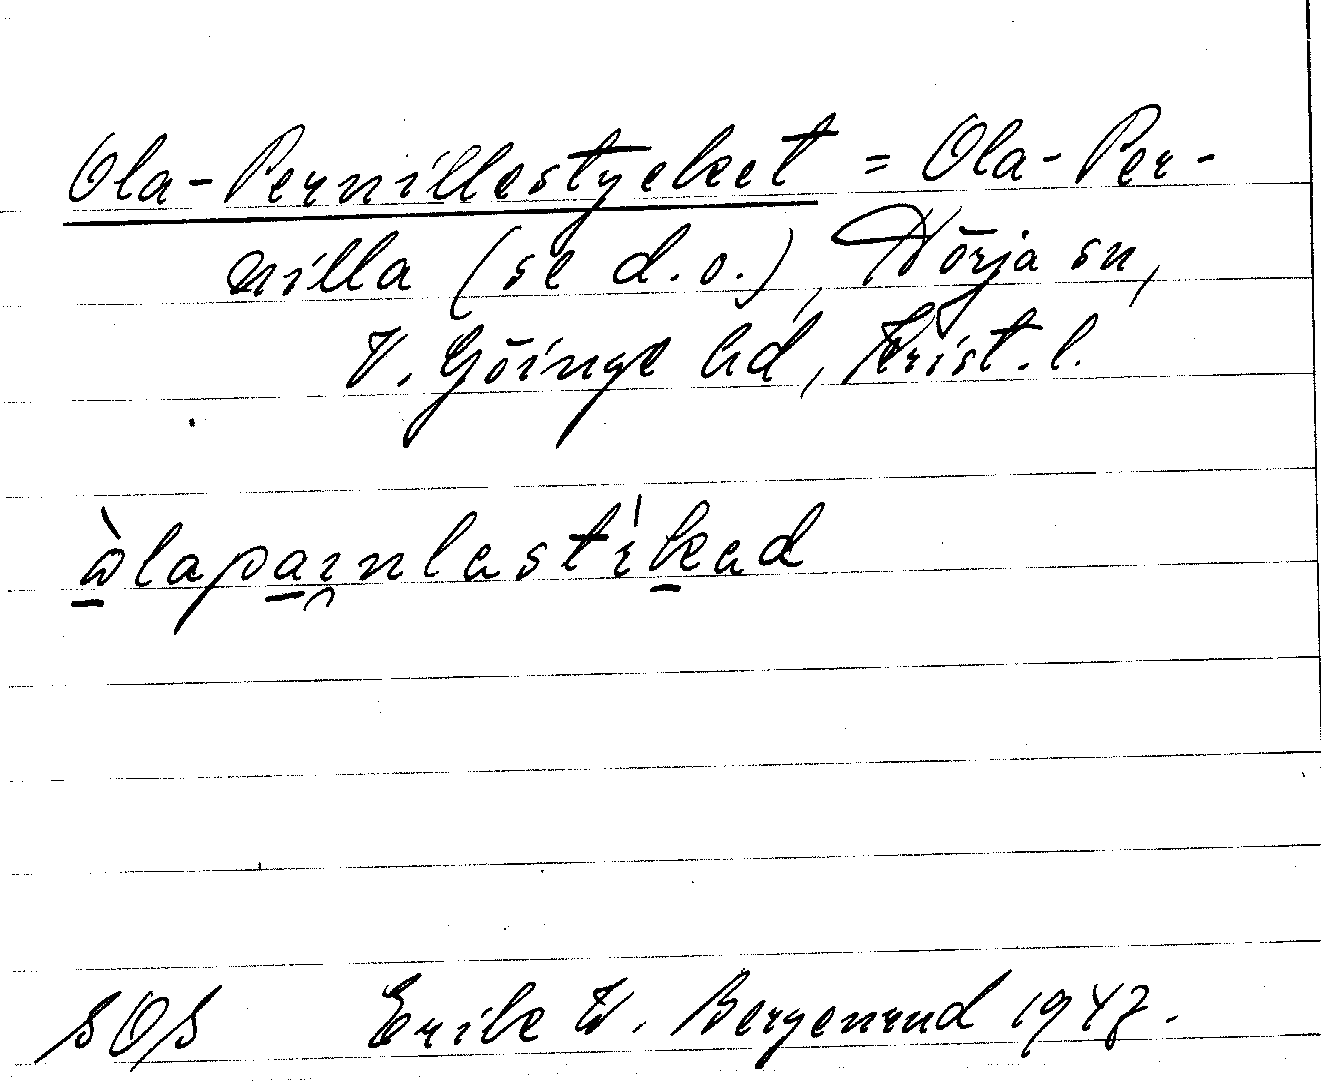 Ola-Pernillestycket = Ola-Per-
nilla (se d.o.), Nörja sn,
V. Göinge hd, Krist. l.
òlapaɿnlastìkad
SOS Erik W. Bergenrud 1947.